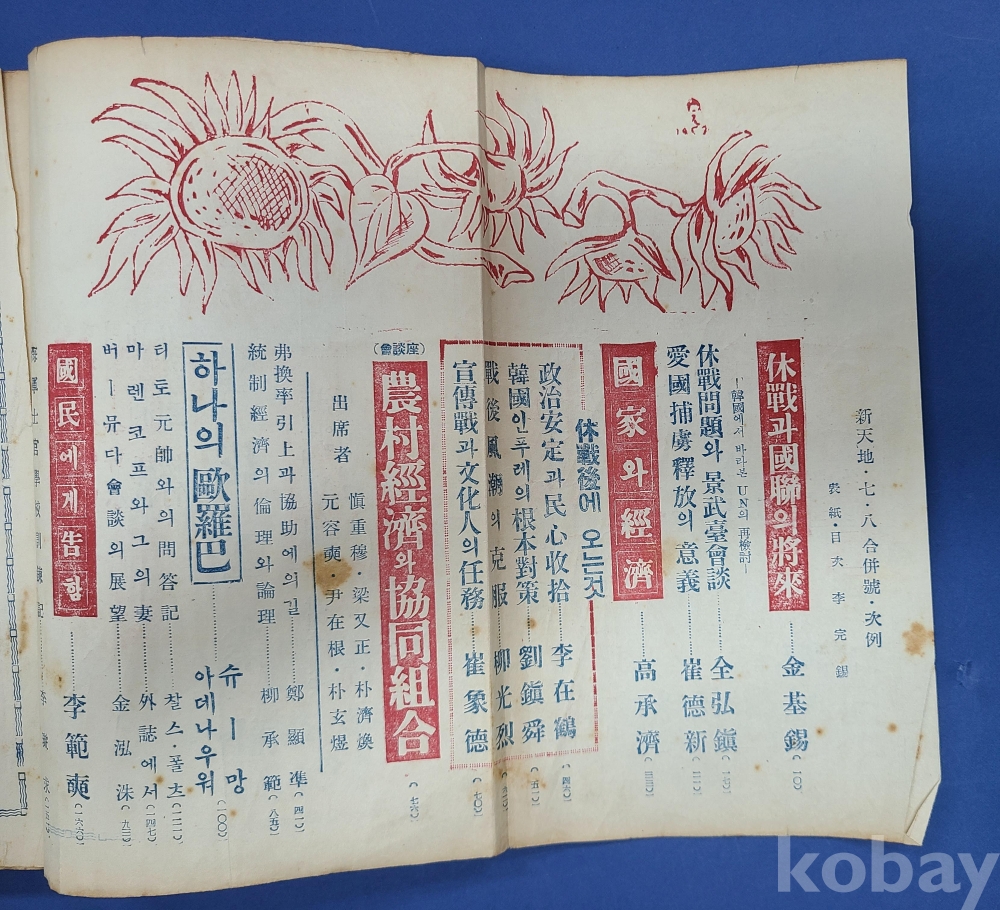 新天地·七·八合併號·次例
表紙·目次 李完錫
休戰과國聯의將來……金基錫(一〇)
―韓國에서 바라본 UN의 再檢討―
休戰問題와 景武臺會談……全弘鎭(一七)
愛國捕虜釋放의 意義……崔德新
國家와經濟……高承濟
休戰後에 오는것
政治安定과民心收拾……李在鶴(四六)
韓國인푸레의根本對策……劉鎭舜(五一)
戰後風潮의克服……柳光烈
宣傳戰과文化人의任務……崔象德(七〇)
(座談會)
農村經濟와協同組合……(七六)
出席者
愼重穆·梁又正·朴濟煥
元容奭·尹在根·朴玄煜
弗換率引上과協助에의길……鄭顯準(四一)
統制經濟의倫理와論理……柳承範(八五)
하나의 歐羅巴……슈ー망 아데나우워(一〇〇)
티토元帥와의問答記……찰스·폴츠(一二一)
마렌코프와그의妻……外誌에서(一四七)
버ー뮤다會談의展望……金泓洙(九三)
國民에게告함……李範奭(一六六)
1953
kobay